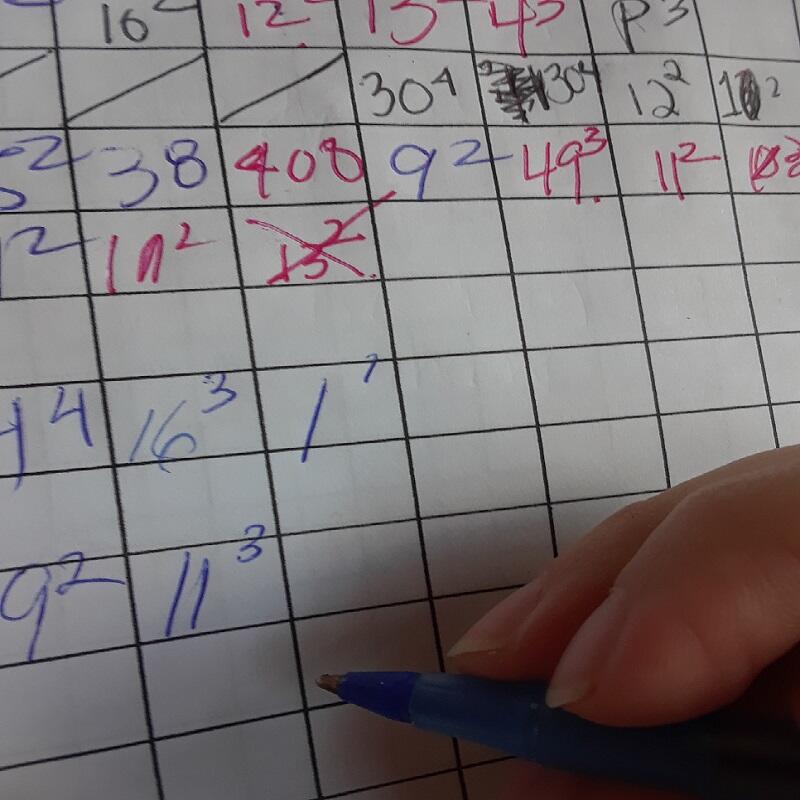 16² 12² 13² 43 P3
30⁴ 130⁴ 12² 10²
5² 38 408 9² 49³ 11²
1² 10² 13²
14 16³ 1⁷
9² 11³